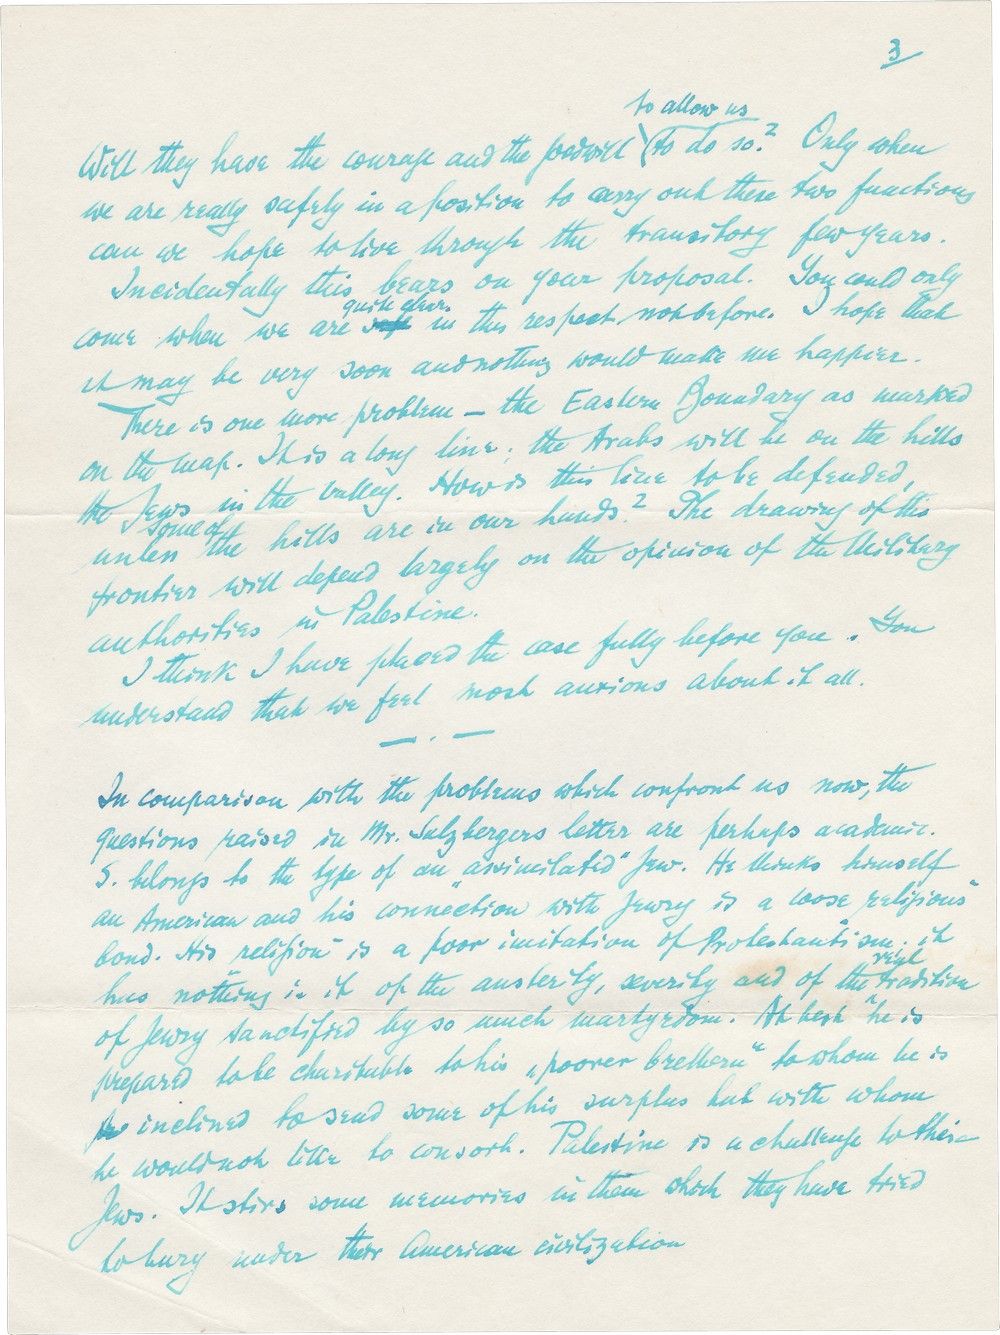 3
to allow us
Will they have the courage and the goodwill to do so? Only when
we are really safely in a position to carry out these two functions
can we hope to live through the transitory few years.
Incidentally this bears on your proposal. You could only
quite clear
come when we are safe in this respect, not before. I hope that
it may be very soon and nothing would make me happier.
There is one more problem — the Eastern Boundary as marked
on the map. It is a long line; the Arabs will be on the hills
the Jews in the valley. How is this line to be defended,
some of
unless the hills are in our hands? The drawing of this
frontier will depend largely on the opinion of the Military
authorities in Palestine.
I think I have placed the case fully before you. You
understand that we feel most anxious about it all.
— . —
In comparison with the problems which confront us now, the
questions raised in Mr. Sulzbergers letter are perhaps academic.
S. belongs to the type of an "assimilated" Jew. He thinks himself
an American and his connection with Jewry is a loose "religious"
bond. His "religion" is a poor imitation of Protestantism; it
real
has nothing in it of the austerity, severity and of the tradition
of Jewry sanctified by so much martyrdom. At best he is
prepared to be charitable to his „poorer brethern" to whom he is
inclined to send some of his surplus but with whom
he would not like to consort. Palestine is a challenge to their
Jews. It stirs some memories in them which they have tried
to bury under their American civilization